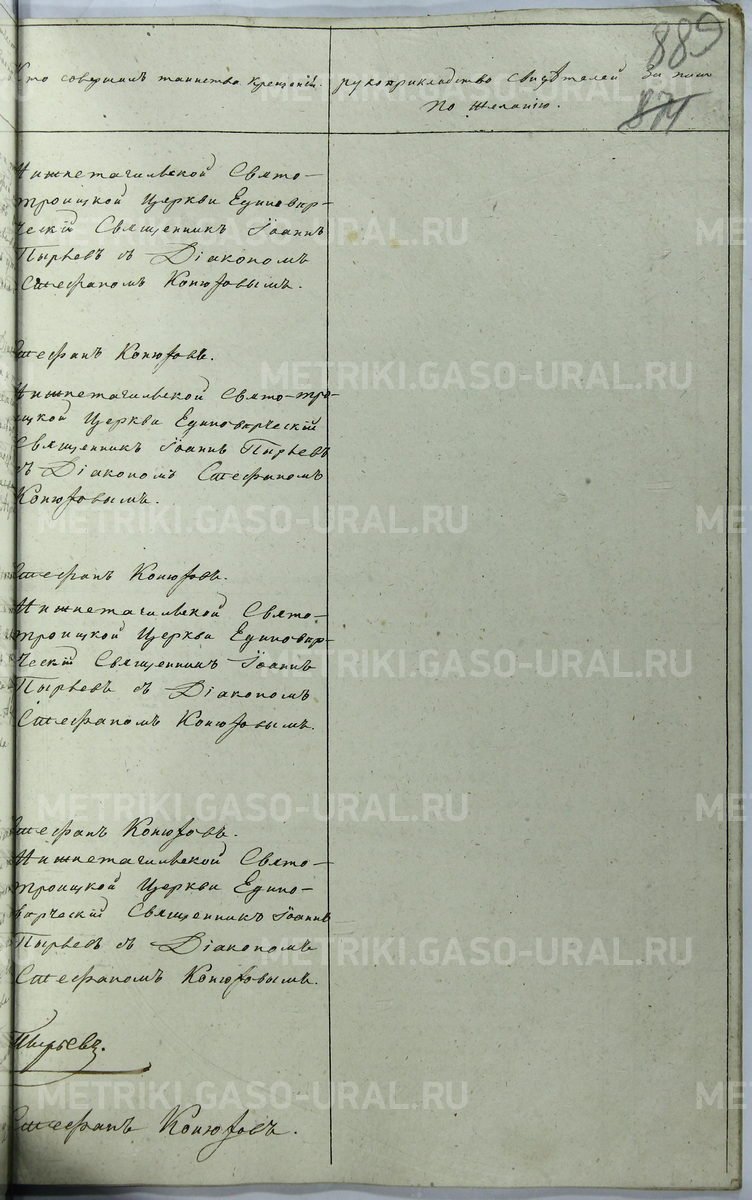 889
874
Кто совершалъ таинства крещенiй.
рукоприкладство свидѣтелей за пись
по желанiю.
Нижнетагильской Свято-
троицкой Церкви Единовѣр-
ческiй Священникъ Iоаннъ
Пырьевъ съ Дiакономъ
Стефаномъ Конюховымъ.
Стефанъ Конюховъ.
Нижнетагильской Свято-тро-
ицкой Церкви Единовѣрческiй
Священникъ Iоаннъ Пырьевъ
съ Дiакономъ Стефаномъ
Конюховымъ.
Стефанъ Конюховъ.
Нижнетагильской Свято-
троицкой Церкви Единовѣр-
ческiй Священникъ Iоаннъ
Пырьевъ съ Дiакономъ
Стефаномъ Конюховымъ.
Стефанъ Конюховъ.
Нижнетагильской Свято-
троицкой Церкви Едино-
вѣрческiй Священникъ Iоаннъ
Пырьевъ съ Дiакономъ
Стефаномъ Конюховымъ.
Пырьевъ.
Стефанъ Конюховъ.
METRIKI.GASO-URAL.RU